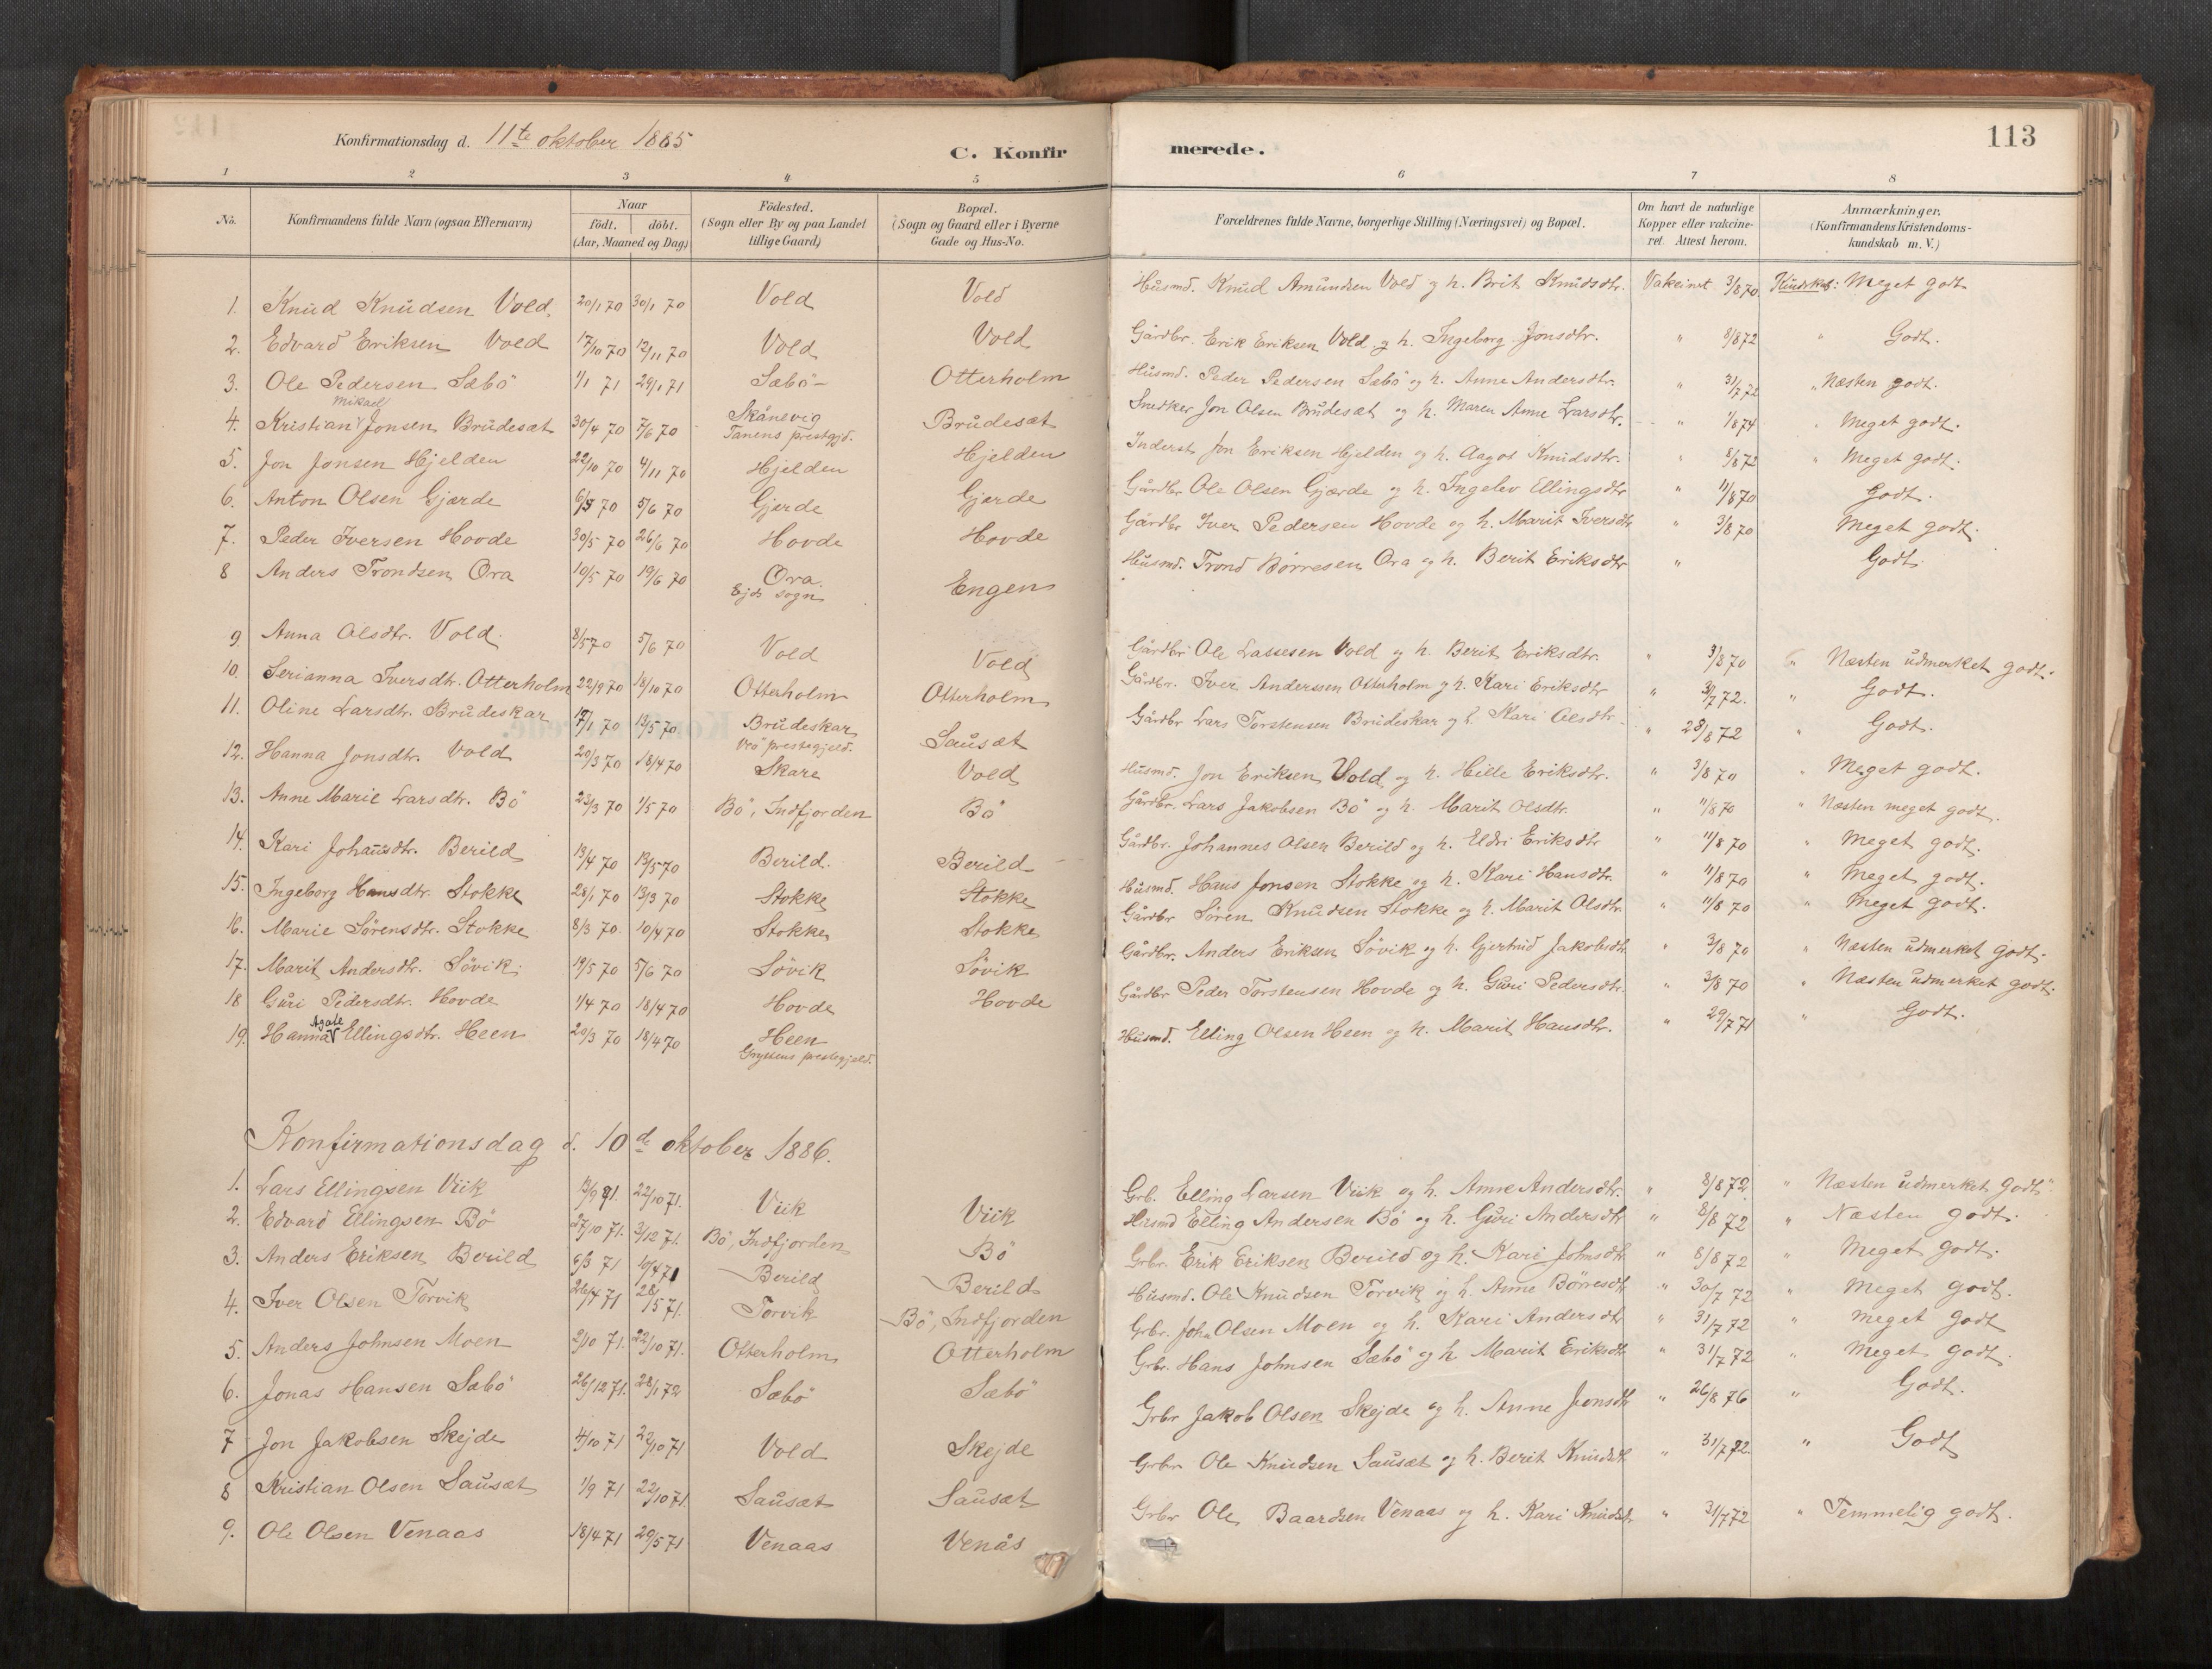 Konfirmationsdag d. 11te oktober 1885
C. Konfirmerede.
113
1 2 3 4 5 6 7 8
No. Konfirmandens fulde Navn (ogsaa Efternavn) Naar födt. döbt. (Aar, Maaned og Dag) Födested. (Sogn eller By og paa Landet tillige Gaard) Bopæl. (Sogn og Gaard eller i Byerne Gade og Hus-No. Forældrenes fulde Navne, borgerlige Stilling (Næringsvei) og Bopæl. Om havt de naturlige Kopper eller vakcineret. Attest herom. Anmærkninger. (Konfirmandens Kristendomskundskab m. V.)
1. Knud Knudsen Vold. 20/1 70 30/1 70 Vold Vold Husmd. Knud Amundsen Vold og h. Brit Knudsdtr. Vakcinet 3/8 70 Kundskab: Meget godt
2. Edvard Eriksen Vold 17/10 70 12/11 70 Vold Vold Gårdbr. Erik Eriksen Vold og h. Ingeborg Jonsdtr. " 8/8 72 " Godt.
3. Ole Pedersen Sæbö 1/1 71 29/1 71 Sæbö Otterholm Husmd. Peder Pedersen Sæbö og h. Anne Andersdtr. " 31/7 72 " Næsten godt.
4. Kristian Mikael Jonsen Brudesæt 30/4 70 7/6 70 Skånevig Tanens prestgjd. Brudesæt Snedker Jon Olsen Brudesæt og h. Maren Anne Larsdtr. " 1/8 74 " Meget godt.
5. Jon Jonsen Hjelden 22/10 70 4/11 70 Hjelden Hjelden Inderst Jon Eriksen Hjelden og h. Aagot Knudsdtr. " 8/8 72 " Meget godt.
6. Anton Olsen Gjærde 6/5 70 5/6 70 Gjerde Gjerde Gårdbr Ole Olsen Gjærde og h. Ingelev Ellingsdtr " 11/8 70 Godt.
7. Peder Iversen Hovde 30/5 70 26/6 70 Hovde Hovde Gårdbr Iver Pedersen Hovde og h. Marit Iversdtr " 3/8 70 Meget godt.
8 Anders Trondsen Ora 10/5 70 19/6 70 Ora. Ejds sogn Engen Husmd. Trond Börresen Ora og h. Berit Eriksdtr " Godt
9 Anna Olsdtr. Vold. 8/5 70 5/6 70 Vold Vold Gårdbr Ole Lassesen Vold og h. Berit Eriksdtr. " 3/8 70 " Næsten udmerket godt.
10. Serianna Iversdtr. Otterholm 22/9 70 18/10 70 Otterholm Otterholm Gårdbr. Iver Anderssen Otterholm og h. Kari Eriksdtr " 3/7 72. " Godt.
11. Oline Larsdtr. Brudeskar 17/1 70 13/5 70 Brudeskar Vrö prestegjeld. Sausæt Gårdbr Lars Torstensen Brudeskar og h. Kari Olsdtr " 28/8 72 " Godt.
12. Hanna Jonsdtr. Vold 20/3 70 18/4 70 Skare Vold Husmd. Jon Eriksen Vold og h. Hille Eriksdtr. " 3/8 70 " Meget godt.
13. Anne Marie Larsdtr. Bö 23/3 70 1/5 70 Bö, Indfjorden Bö Gårdbr. Lars Jakobsen Bö og h. Marit Olsdtr. " 11/8 70 " Næsten meget godt.
14. Kari Johansdtr. Berild 13/4 70 13/5 70 Berild. Berild Gårdbr. Johannes Olsen Berild og h. Eldri Eriksdtr " 11/8 70 " Meget godt.
15. Ingeborg Hansdtr. Stokke 28/1 70 13/3 70 Stokke Stokke Husmd. Hans Jonsen Stokke og h. Kari Hansdtr. " 11/8 70 " Meget godt.
16. Marie Sörensdtr. Stokke 8/3 70. 10/4 70 Stokke Stokke Gårdbr Sören Knudsen Stokke og h. Marit Olsdtr. " 11/8 70 " Meget godt.
17. Marit Andersdtr. Sövik 19/5 70 5/6 70 Sövik Sövik Gårdbr. Anders Eriksen Sövik og h. Gjertrud Jakobsdtr " 3/8 70 " Næsten udmerket godt.
18 Guri Pedersdtr. Hovde 1/4 70 18/4 70 Hovde Hovde Gårdbr Peder Torstensen Hovde og h. Guri Pedersdtr. " 3/8 70 " Næsten udmerket godt.
19. Hanna Agate Ellingsdtr. Heen 20/3 70 18/4 70 Heen Gryttens prestegjeld. Husmd. Elling Olsen Heen og h. Marit Hansdtr. " 29/7 71 " Godt.
Konfirmationsdag d. 10de oktober 1886.
1. Lars Ellingsen Viik 13/9 71. 22/10 71. Viik Viik Grb. Elling Larsen Viik og h. Anne Andersdtr. " 8/8 72. " Næsten udmerket godt
2. Edvard Ellingsen Bö 27/10 71. 3/12 71. Bö, Indfjorden Bö Husmd Elling Andersen Bö og h. Guri Andersdtr " 8/8 72 " Næsten godt.
3. Anders Eriksen Berild 6/3 71 10/4 71 Berild Berild Grbr. Erik Eriksen Berild og h. Kari Johnsdtr " 8/8 72 " Meget godt.
4. Iver Olsen Torvik 26/4 71 28/5 71. Torvik Bö, Indfjorden Husmd. Ole Knudsen Torvik og h. Anne Börresdtr " 30/7 72 " Meget godt.
5. Anders Johnsen Moen 2/10 71. 22/10 71. Otterholm Otterholm Grbr. John Olsen Moen og h. Kari Andersdtr " 31/7 72 " Meget godt
6. Jonas Hansen Sæbö 26/12 71. 28/1 72 Sæbö Sæbö Grbr. Hans Johnsen Sæbö og h Marit Eriksdtr " 31/7 72 " Meget godt.
7 Jon Jakobsen Skejde 4/10 71 22/10 71 Vold Skejde Grbr Jakob Olsen Skejde og h. Anne Jonsdtr " 26/8 76 " Godt.
8 Kristian Olsen Sausæt 1/9 71 22/10 71 Sausæt Sausæt Grbr Ole Knudsen Sausæt og h. Berit Knudsdt. " 31/7 72. " Godt
9. Ole Olsen Venaas 18/4 71 29/5 71 Venaas Venås Grbr Ole Baardsen Venaas og h. Kari Knudsdt " 31/7 72 " Temmelig godt.